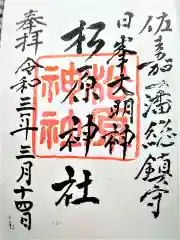 佐嘉藩総鎮守
日峯大明神
松原神社
奉拝
令和三年三月十四日